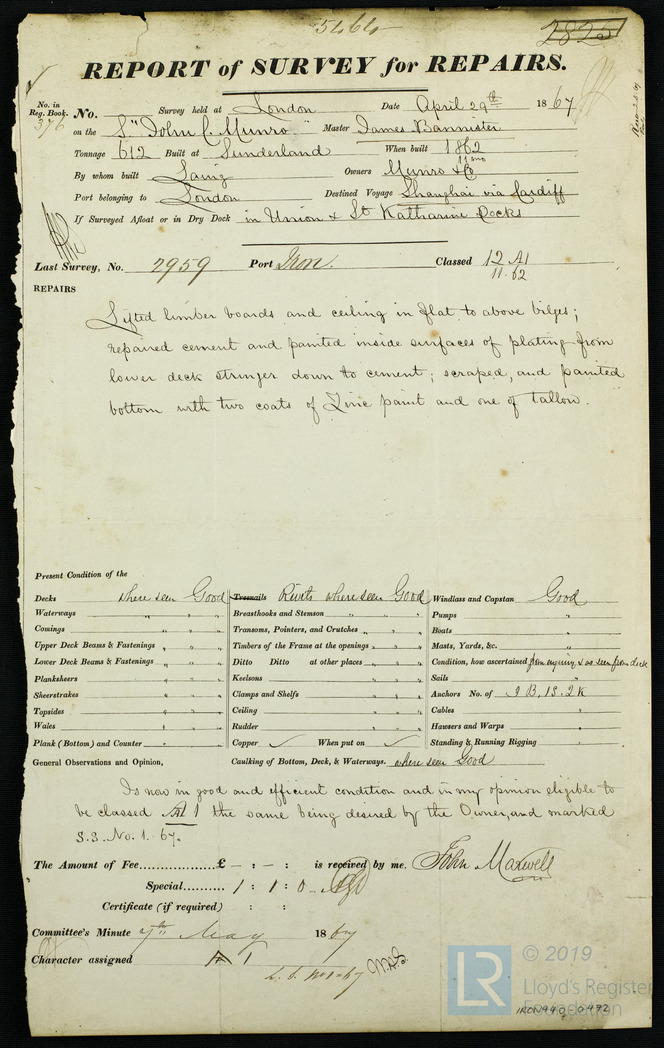 5464
2825
REPORT of SURVEY for REPAIRS.
No. in Reg. Book. No. Survey held at London Date April 29th 1867
376 on the S. "John C. Munro" Master James Bannister
Tonnage 612 Built at Sunderland When built 1862
11 mo
By whom built Laing Owners Munro & Co
Port belonging to London Destined Voyage Shanghai via Cardiff
If Surveyed Afloat or in Dry Dock in Union & St Katharine Docks
Last Survey, No. 2959 Port Iron. Classed 12 A1
11.62
REPAIRS
Lifted limber boards and ceiling in flat to above bilges;
repaired cement and painted inside surfaces of plating from
lower deck stringer down to cement; scraped, and painted
bottom with two coats of Zinc paint and one of tallow.
Present Condition of the
Decks where seen Good Treenails Rivets where seen Good Windlass and Capstan Good
Waterways " " " Breasthooks and Stemson " " " Pumps "
Comings " " " Transoms, Pointers, and Crutches " " " Boats "
Upper Deck Beams & Fastenings " " " Timbers of the Frame at the openings " " " Masts, Yards, &c. "
Lower Deck Beams & Fastenings " " " Ditto Ditto at other places " " " Condition, how ascertained from enquiry & as seen from deck
Planksheers " " " Keelsons " " " Sails "
Sheerstrakes " " " Clamps and Shelfs " " " Anchors No. of 3 B. 1S. 2K
Topsides " " " Ceiling " " " Cables "
Wales " " " Rudder " " " Hawsers and Warps "
Plank (Bottom) and Counter " " " Copper ✓ When put on ✓ Standing & Running Rigging "
General Observations and Opinion, Caulking of Bottom, Deck, & Waterways. where seen Good
Is now in good and efficient condition and in my opinion eligible to
be classed A1 the same being desired by the Owner, and marked
S.S. No. 1. 67.
The Amount of Fee £ - : - : is received by me. John Maxwell
Special 1 : 1 : 0
Certificate (if required) : :
Committee's Minute 7th May 1867
Character assigned A 1
S.S. No 1-67
LR
© 2019
Lloyd's Register
Foundation
IRON440-0492